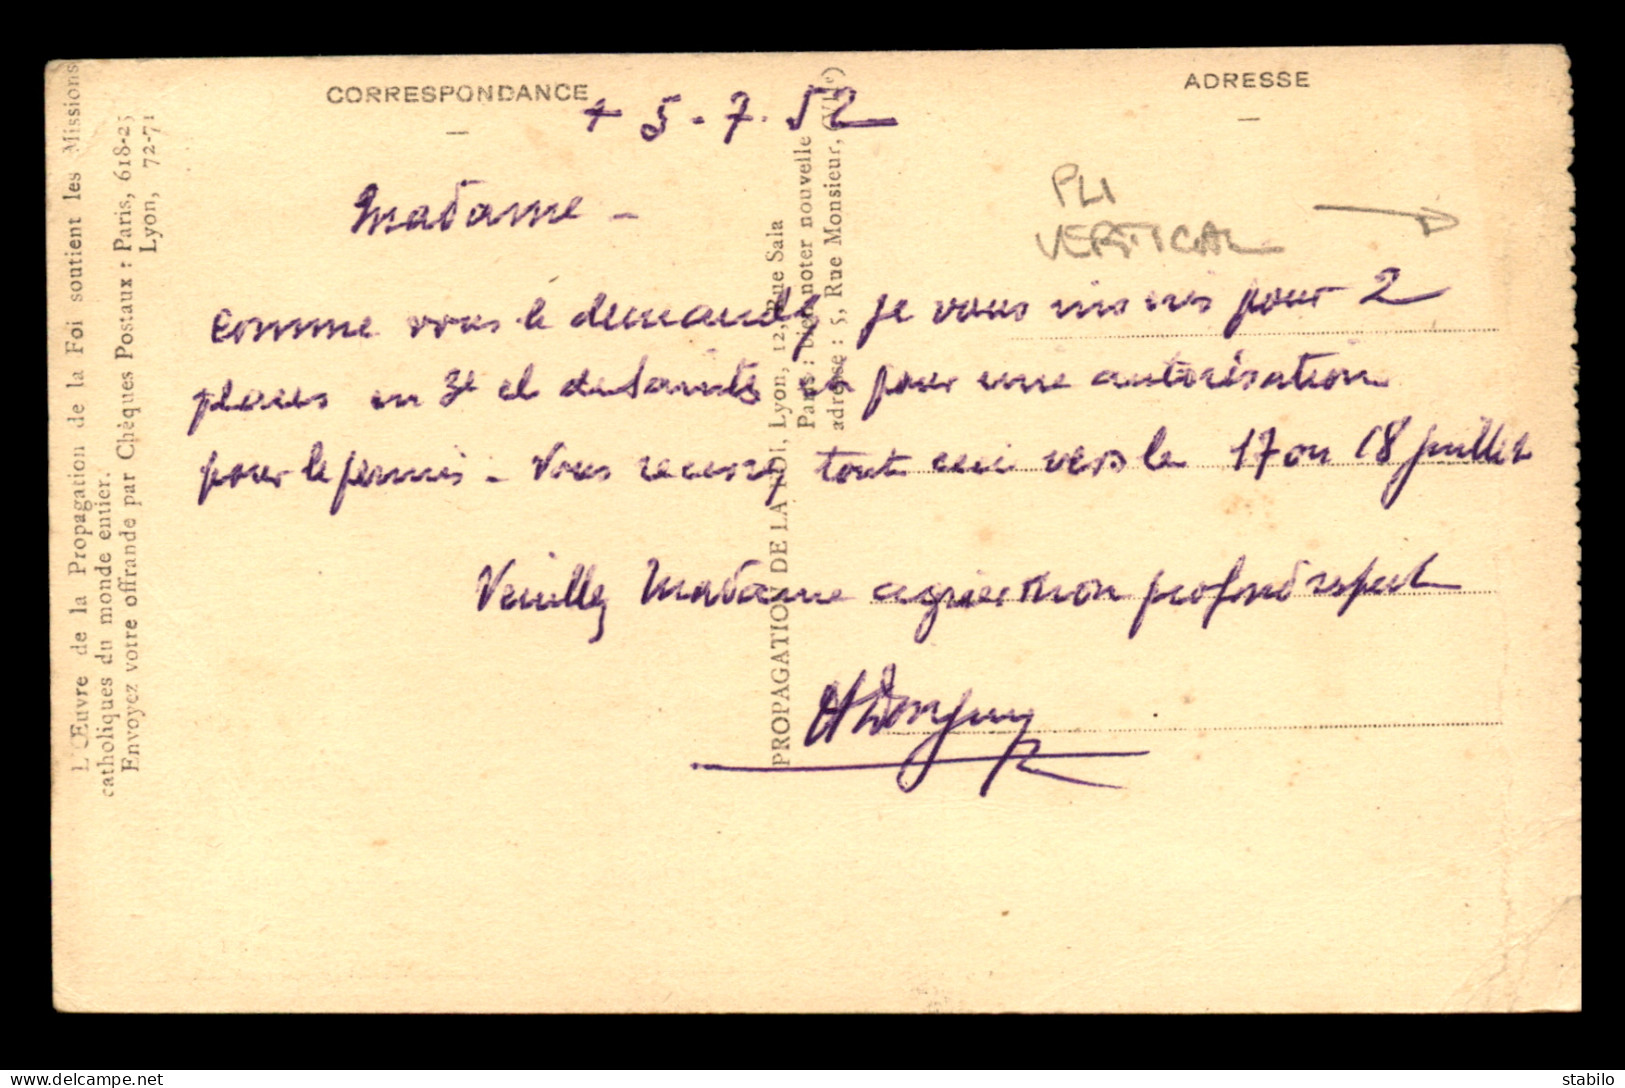 CORRESPONDANCE
ADRESSE
+ 5-7.52
Madame -
PLI
VERTICAL
comme vous le demandez je vous inscris pour 2
places en 3e et pour une autorisation
pour le permis - Vous recevrez tout ceci vers le 17 ou 18 juillet
Veuillez Madame agréer mon profond respect
L'Œuvre de la Propagation de la Foi soutient les Missions
catholiques du monde entier.
Envoyez votre offrande par Chèques Postaux : Paris, 618-25
Lyon, 72-71
PROPAGATION DE LA FOI, Lyon, 12, Rue Sala
Paris : bien noter nouvelle
adresse : 5, Rue Monsieur, (VIIe)
stabilo